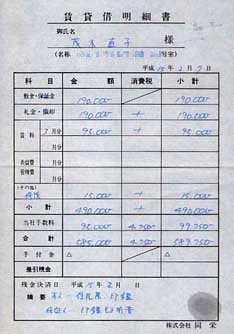 賃貸借明細書
御氏名
茂木直子 様
(名称 号室)
平成15年2月7日
科目 金額 消費税 小計
敷金・保証金 190,000 190,000
礼金・償却 190,000 + 190,000
賃料 3月分 95,000 + 95,000
月分
共益費 月分
管理費
(その他)
保険 15,000 + 15,000
小計 490,000 + 490,000
当社手数料 95,000 4,750 99,750
合計 585,000 4,750 589,750
手付金 △ △
差引残金
残金決済日 平成15年2月 日
摘要 本人-住民票 印鑑
保証人-印鑑証明書
株式会社 同栄